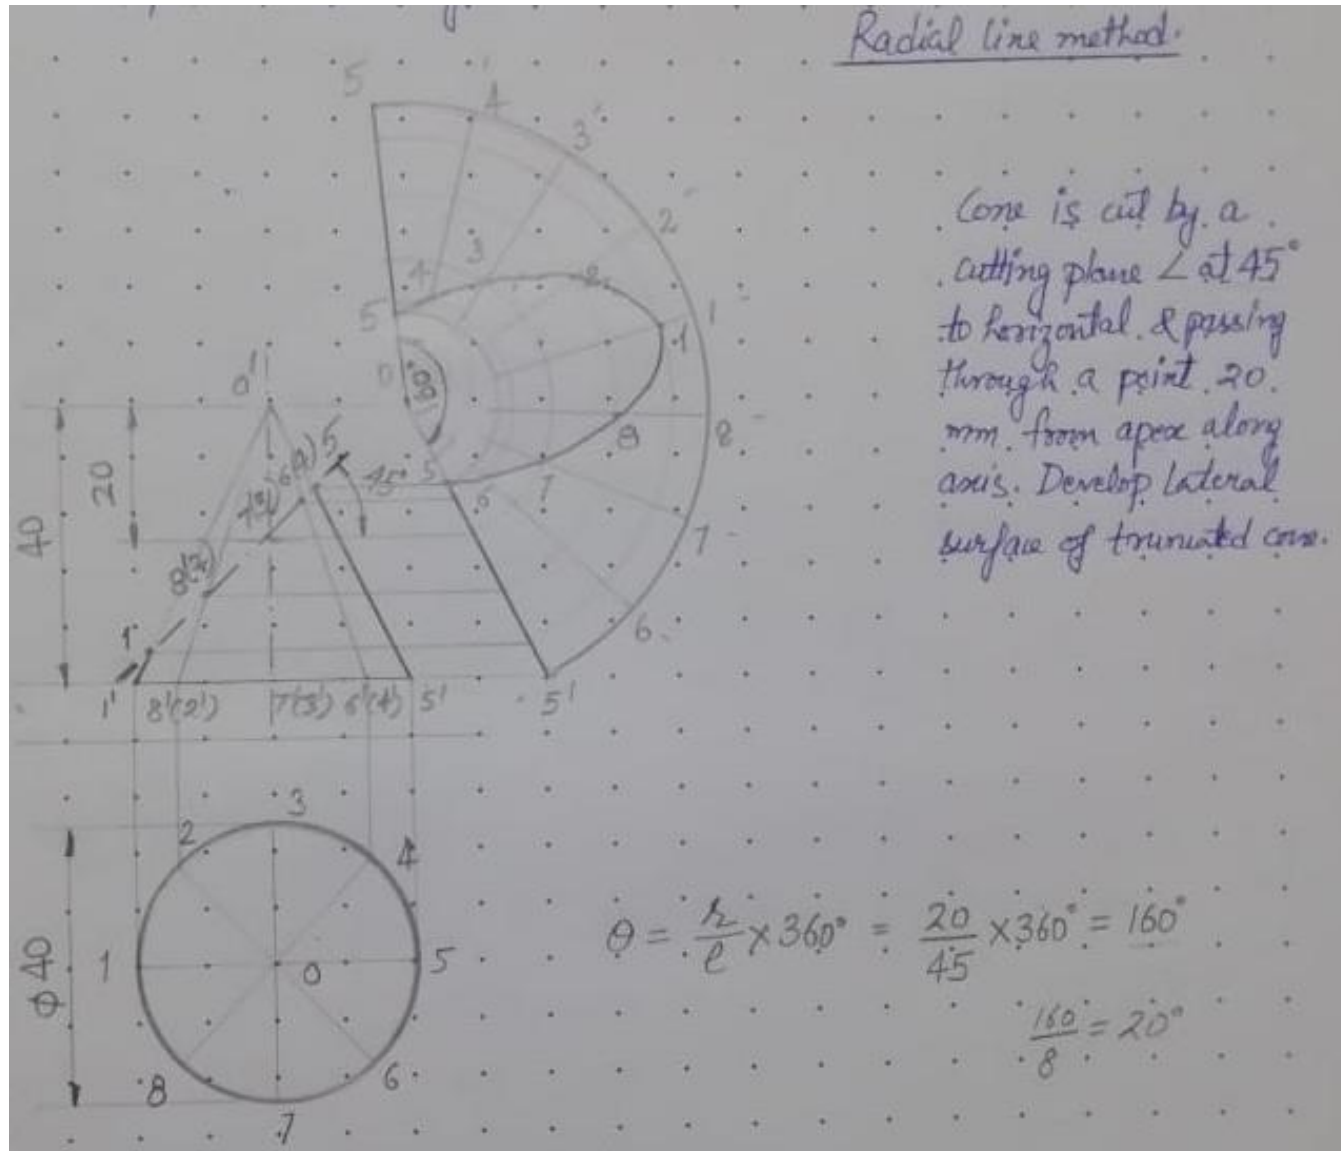 Radial line method.
5
4
3'
2
1
8
7
6
5'
Cone is cut by a
cutting plane ∠ at 45°
to horizontal & passing
through a point 20
mm from apex along
axis. Develop Lateral
surface of truncated cone.
4
3
2
5
1
0
160°
8
5
6
7
0'
40
20
6'(4')
5'
45°
8'(2')
1'
1'
8'(2')
7'(3')
6'(4')
5'
φ40
3
2
4
1
0
5
8
6
7
θ = r/l × 360° = 20/45 × 360° = 160°
160/8 = 20°